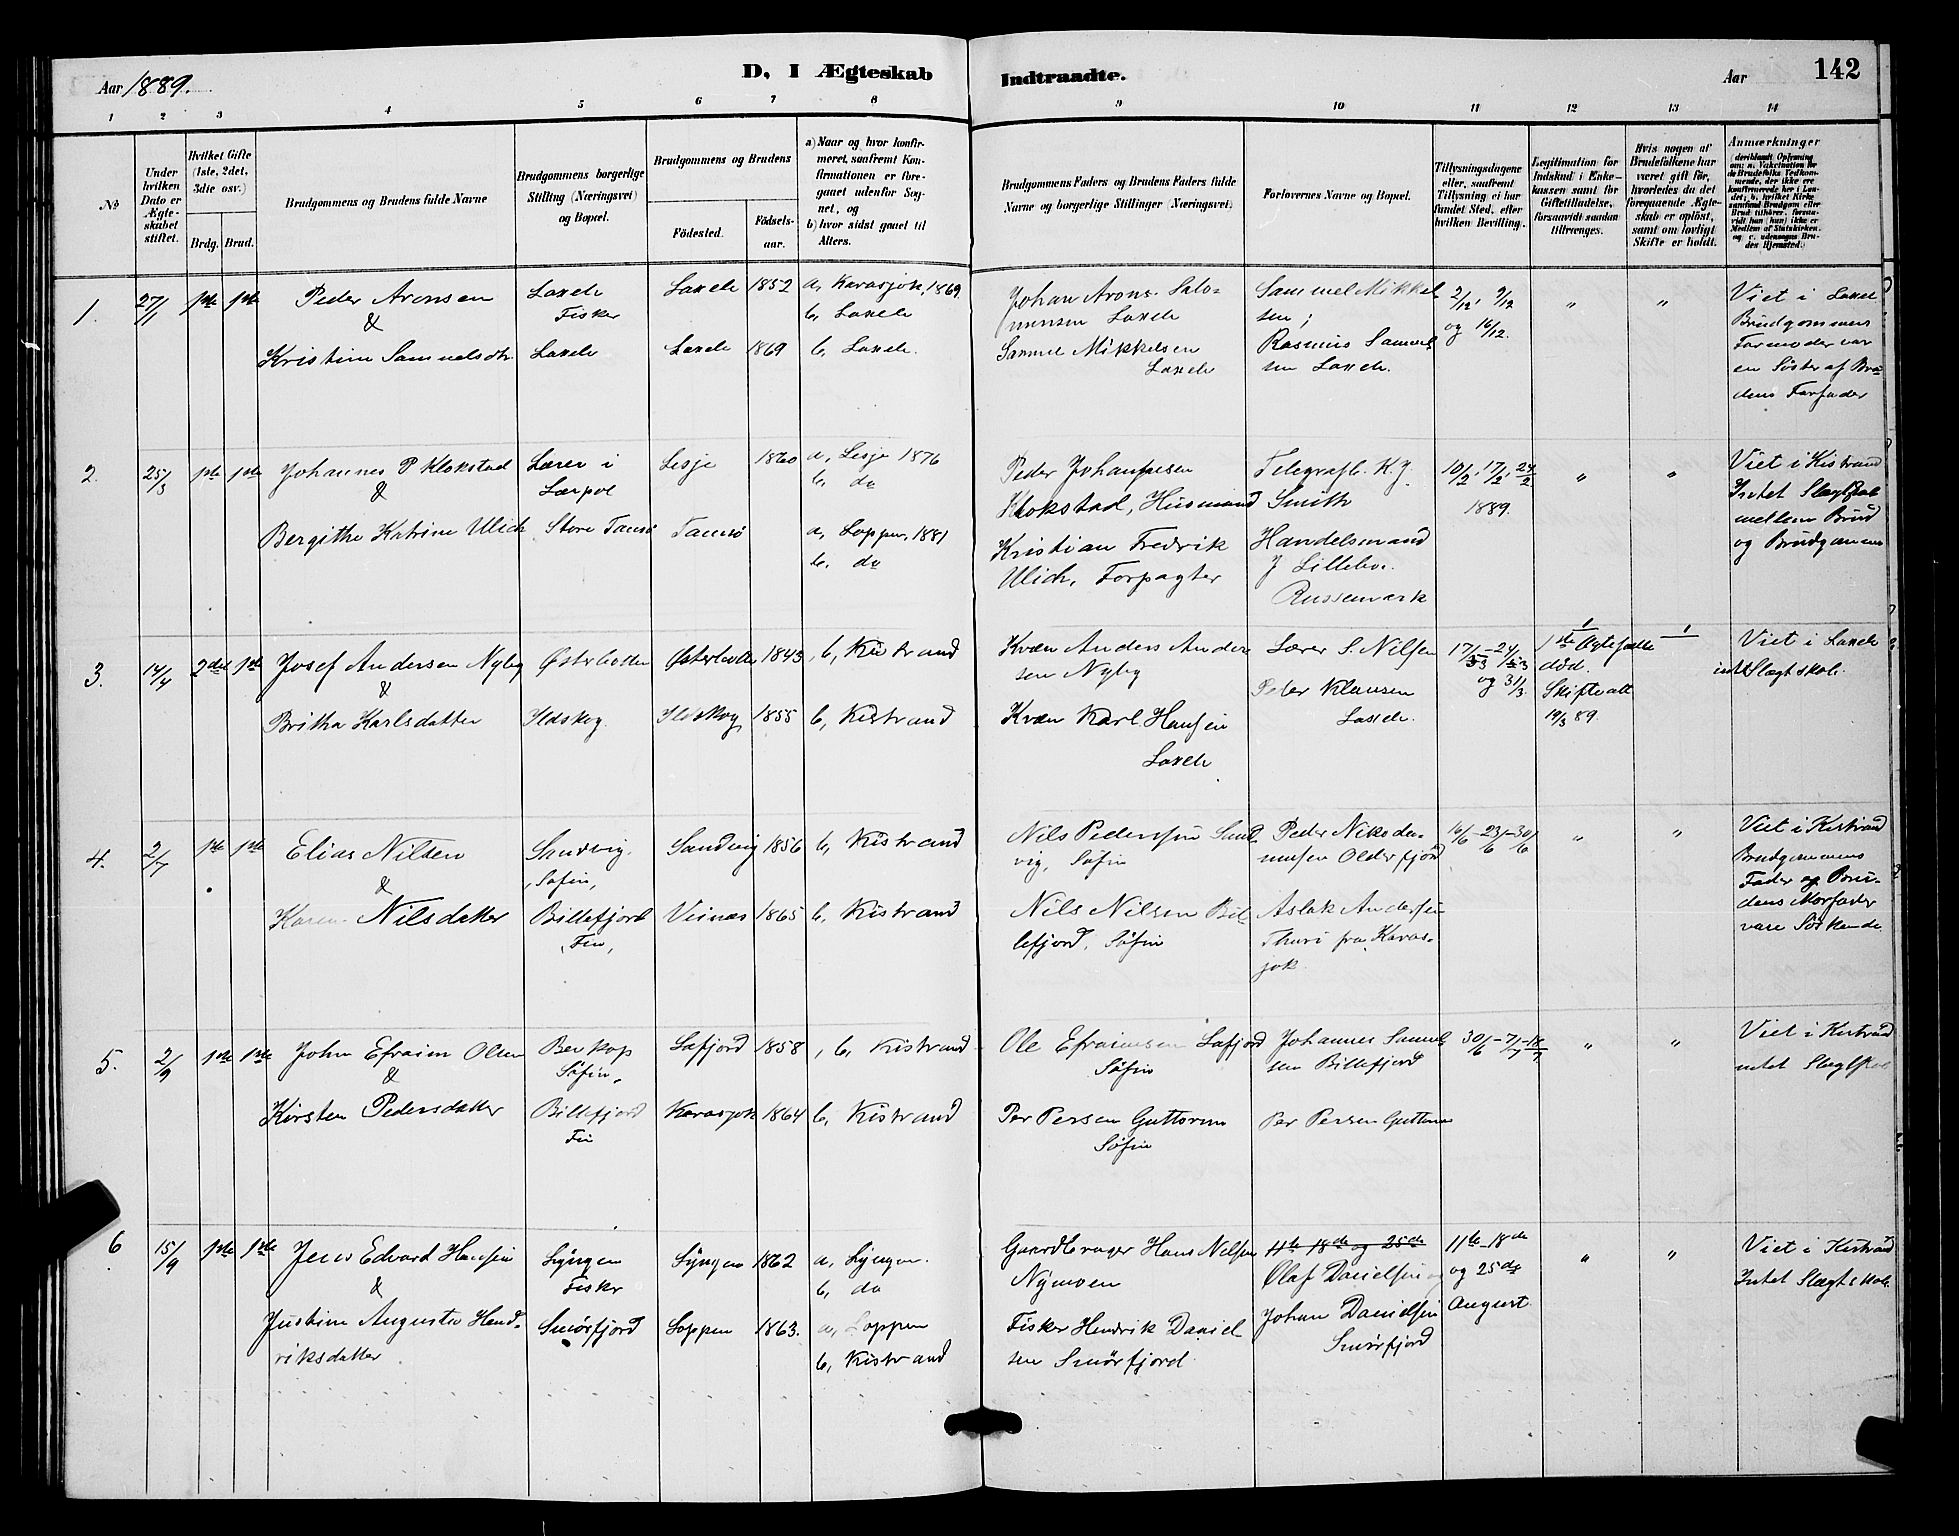 Aar 1889.
D, I Ægteskab Indtraadte.
Aar 142
1 2 3 4 5 6 7 8 9 10 11 12 13 14
No
Under hvilken Dato er Ægteskabet stiftet.
Hvilket Gifte (1ste, 2det, 3die osv.)
Brdg. Brud.
Brudgommens og Brudens fulde Navne
Brudgommens borgerlige Stilling (Næringsvei) og Bopæl.
Brudgommens og Brudens
Födested. Födselsaar.
a) Naar og hvor konfirmeret, saafremt Konfirmationen er foregaaet udenfor Sognet, og
b) hvor sidst gaaet til Alters.
Brudgommens Faders og Brudens Faders fulde Navne og borgerlige Stillinger (Næringsvei)
Forlovernes Navne og Bopæl.
Tillysningsdagene eller, saafremt Tillysning ei har fundet Sted, efter hvilken Bevilling.
Legitimation for Indskud i Enkekassen samt for Giftetilladelse, forsaavidt saadan tiltrænges.
Hvis nogen af Brudefolkene har været gift før, hvorledes da det foregaaende Ægteskab er oplöst, samt om lovligt Skifte er holdt.
Anmærkninger
1. 27/1 1ste 1ste
Peder Aronsen
&
Kristine Samuelsdtr
Laxelv
Fisker
Laxelv
Laxelv 1852
Laxelv 1869
a, Karasjok, 1869
b, Laxelv
b, Laxelv.
Johan Arons. Salo-
monsen Laxelv
Samuel Mikkelsen
Laxelv
Sammel Mikkel
sen;
Rasmus Samuel
sen Laxelv.
2/12, 9/12
og 16/12.
" "
Viet i Laxelv
Brudgommens
Farmoder var
en Søster af Bru
dens Farfader
2. 25/3 1ste 1ste
Johannes P Klokstad
&
Bergithe Katrine Ulich
Lærer i
Lærpol
Store Tamsö
Lesje 1860
Tamsö
a, Lesje 1876
b, do
a, Loppen, 1881
b, do
Peder Johannesen
Klokstad, Husmand
Kristian Fredrik
Ulich, Forpagter
Telegrafb. K. J.
Smith
Handelsmand
J Lillebo.
Russemark
10/2, 17/2, 24/2.
1889.
" "
Viet i Kistrand
Intet Slægtskab
mellem Brud
og Brudgommen
3. 14/4 2det 1ste
Josef Andersen Nyby
&
Britha Karlsdatter
Østerbotten
Ildskog.
Østerbotten 1843
Ildskog 1855
, b, Kistrand
b, Kistrand
Kvæn Anders Ander
sen Nyby
Kvæn Karl Hansen
Laxelv
Lærer S. Nilsen
Peder Klausen
Laxelv.
17/3 - 24/3
og 31/3.
1ste Ægtefælle
död.
Skifteatt
19/3 89.
Viet i Laxelv
intet Slægtskab.
4. 2/7 1ste 1ste
Elias Nilsen
&
Karen Nilsdatter
Sandvig.
, Søfin,
Billefjord
, Fin,
Sandvig 1856
Veinæs 1865
b, Kistrand
b, Kistrand
Nils Pedersen Sand
vig, Søfin
Nils Nilsen Bil
lefjord, Søfin
Peder Nikode-
musen Olderfjord
Aslak Andersen
Thuri fra Karas-
jok
16/6 - 23/6 - 30/6
" "
Viet i Kistrand
Brudgommens
Fader og Bru-
dens Morfader
vare Söskende
5. 2/9 1ste 1ste
John Efraim Olsen
&
Kirsten Pedersdatter
Berkop
Søfin,
Billefjord
Fin
Lafjord 1858
Karasjok 1864
, b, Kistrand
b, Kistrand
Ole Efraimsen Lafjord
Søfin
Per Persen Guttorm
Søfin
Johannes Samuel
sen Billefjord
Per Persen Guttorm
30/6 - 7/7 - 14/7
" "
Viet i Kistrand
intet Slægtskab
6 15/9 1ste 1ste
Jens Edvard Hansen
&
Justine Augusta Hend-
riksdatter
Lyngen
Fisker
Smörfjord
Lyngen 1862
Loppen 1863.
a, Lyngen.
b, do
a, Loppen
b, Kistrand
Gaardbruger Hans Nilsen
Nymoen
Fisker Hendrik Daniel
sen Smörfjord
11te 18de og 25de
Olaf Danielsen og
Johan Danielsen
Smörfjord
11te - 18de
og 25de
August.
" "
Viet i Kistrand
Intet Slægtskab.